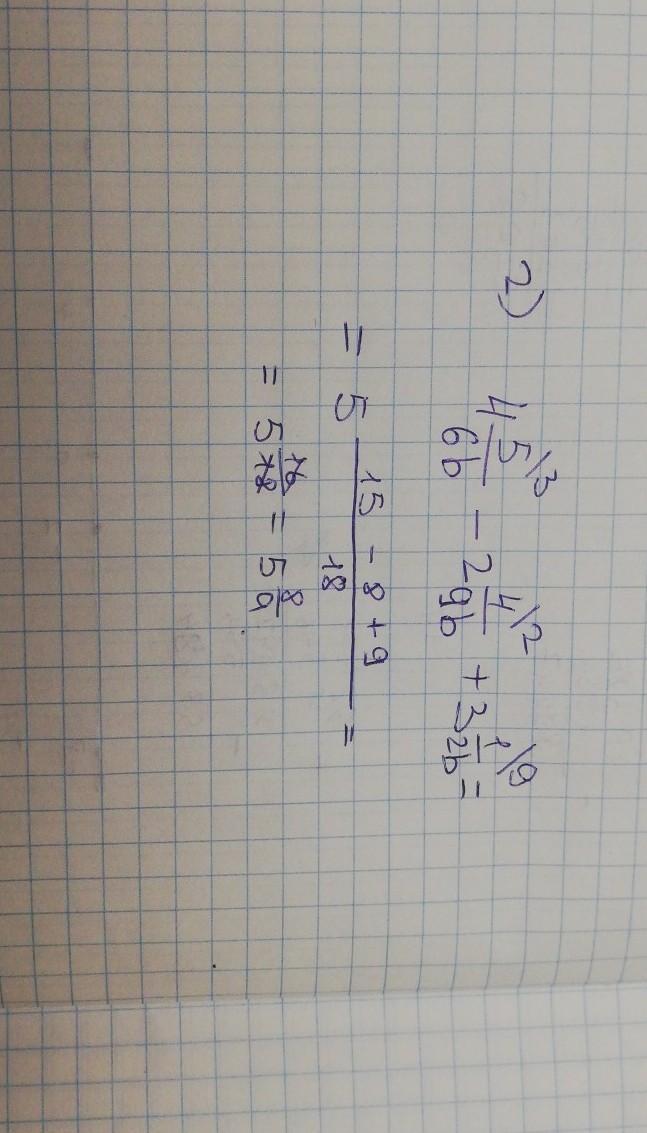 2) 4 5/6b \3 - 2 4/9b \2 + 3 1/2b \9 =
= 5 (15 - 8 + 9)/18 =
= 5 16/18 = 5 8/9